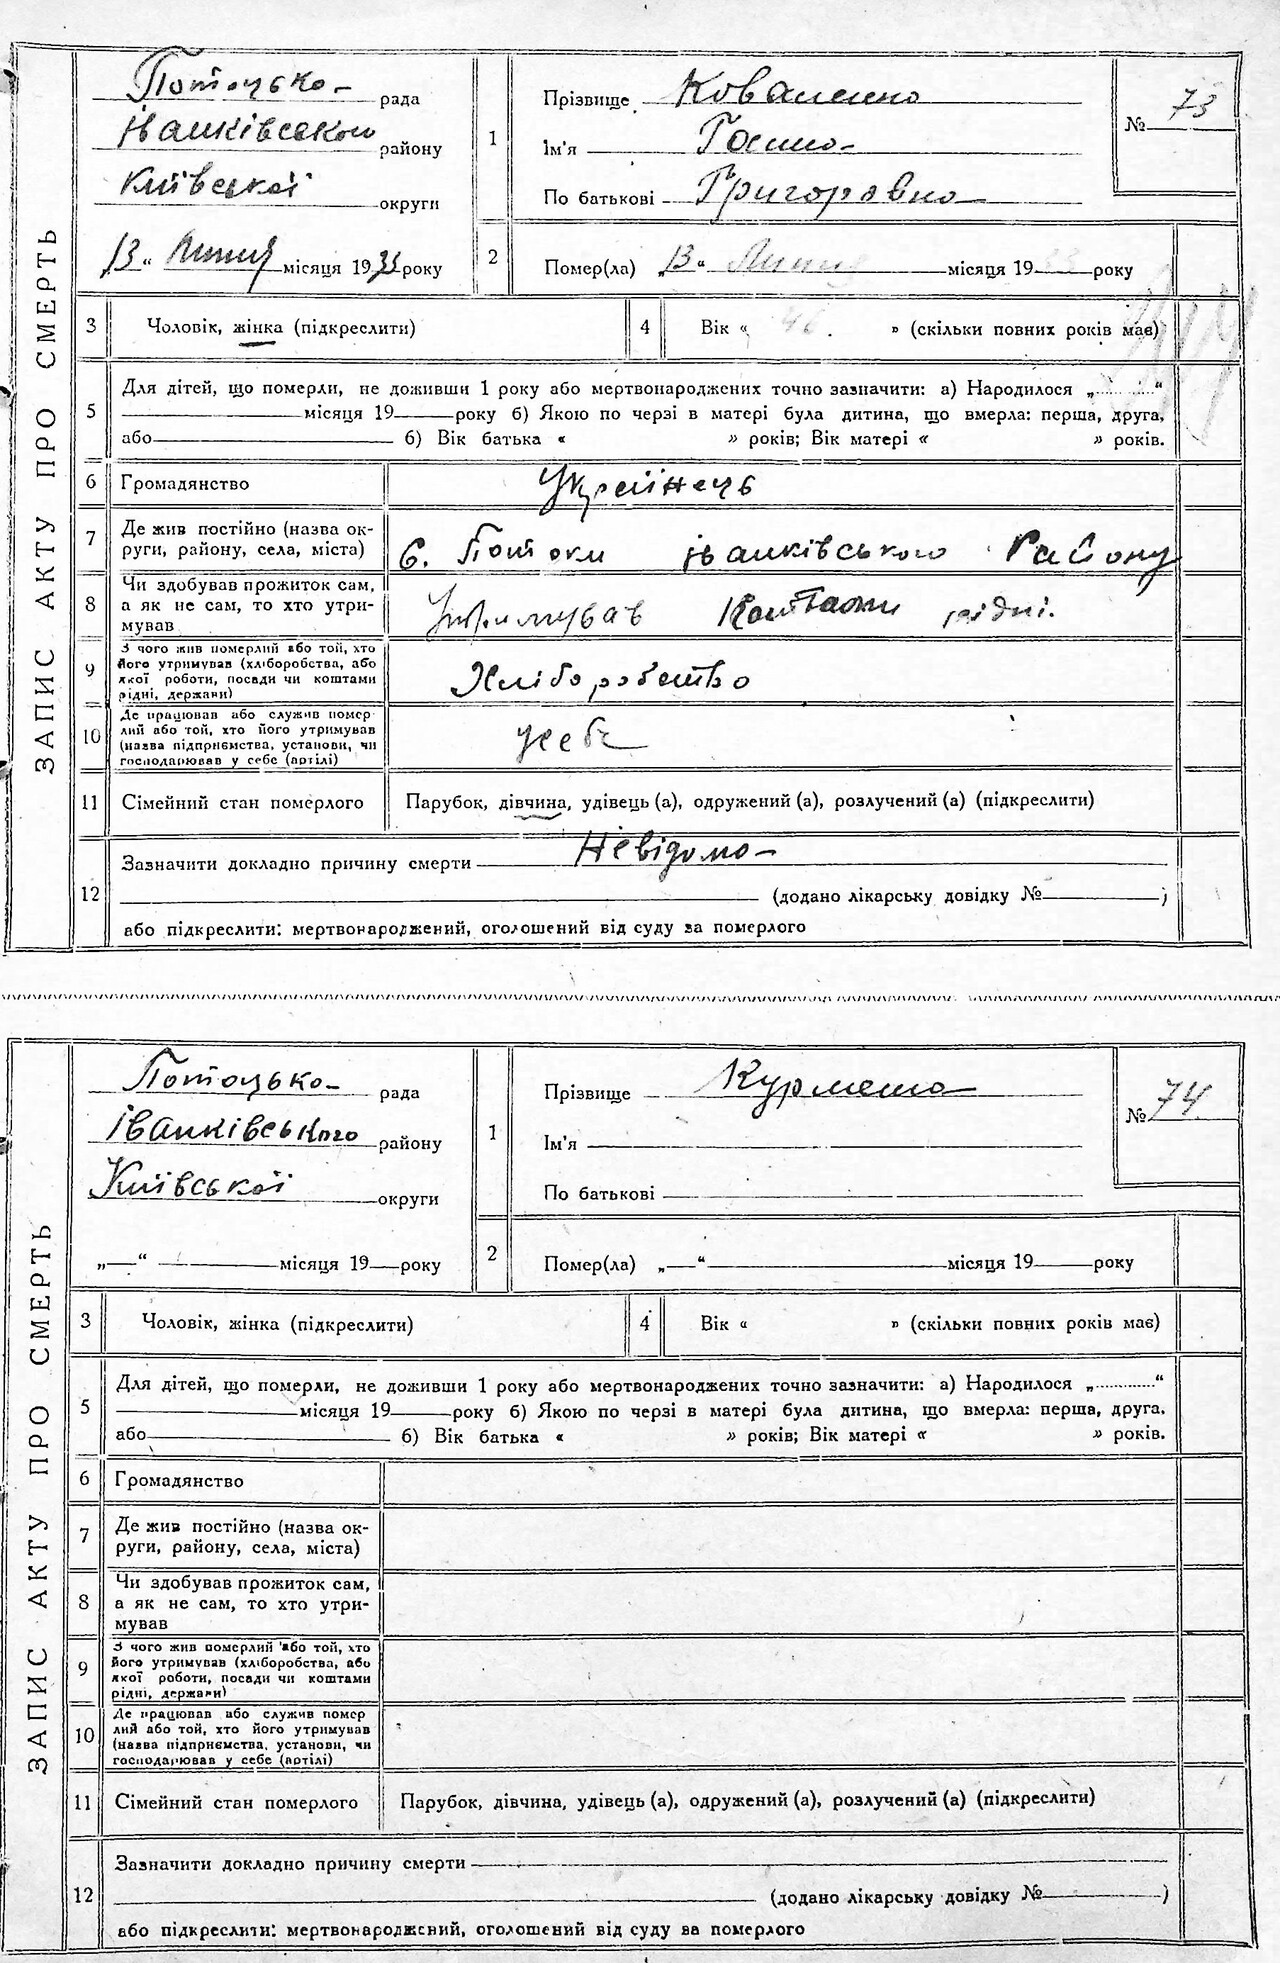 ЗАПИС АКТУ ПРО СМЕРТЬ
Потоцько- рада
Іванківського району
Київської округи
"13" Липня місяця 1933 року
1 Прізвище Коваленко
Ім'я
По батькові Григоровно
№ 73
2 Помер(ла) „13" Липня місяця 1933 року
3 Чоловік, жінка (підкреслити)
4 Вік « 46 » (скільки повних років має)
5 Для дітей, що померли, не доживши 1 року або мертвонароджених точно зазначити: а) Народилося „..........."
місяця 19 року б) Якою по черзі в матері була дитина, що вмерла: перша, друга,
або б) Вік батька « » років; Вік матері « » років.
6 Громадянство Українець
7 Де жив постійно (назва ок-
руги, району, села, міста) с. Потоки іванківського Району
8 Чи здобував прожиток сам,
а як не сам, то хто утри-
мував Утримував Коштами рідні.
9 З чого жив померлий або той, хто
його утримував (хліборобства, або
якої роботи, посади чи коштами
рідні, держави) Хліборобство
10 Де працював або служив помер
лий або той, хто його утримував
(назва підприємства, установи, чи
господарював у себе (артілі) усебе
11 Сімейний стан померлого Парубок, дівчина, удівець (а), одружений (а), розлучений (а) (підкреслити)
12 Зазначити докладно причину смерти Невідомо
(додано лікарську довідку № )
або підкреслити: мертвонароджений, оголошений від суду за померлого
ЗАПИС АКТУ ПРО СМЕРТЬ
Потоцько- рада
іванківського району
Київської округи
„—" місяця 19 року
1 Прізвище
Ім'я
По батькові
№ 74
2 Помер(ла) „—" місяця 19 року
3 Чоловік, жінка (підкреслити)
4 Вік « » (скільки повних років має)
5 Для дітей, що померли, не доживши 1 року або мертвонароджених точно зазначити: а) Народилося „..........."
місяця 19 року б) Якою по черзі в матері була дитина, що вмерла: перша, друга,
або б) Вік батька « » років; Вік матері « » років.
6 Громадянство
7 Де жив постійно (назва ок-
руги, району, села, міста)
8 Чи здобував прожиток сам,
а як не сам, то хто утри-
мував
9 З чого жив померлий або той, хто
його утримував (хліборобства, або
якої роботи, посади чи коштами
рідні, держави)
10 Де працював або служив помер
лий або той, хто його утримував
(назва підприємства, установи, чи
господарював у себе (артілі)
11 Сімейний стан померлого Парубок, дівчина, удівець (а), одружений (а), розлучений (а) (підкреслити)
12 Зазначити докладно причину смерти
(додано лікарську довідку № )
або підкреслити: мертвонароджений, оголошений від суду за померлого